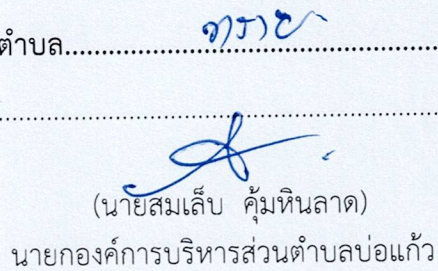 ตำบล
(นายสมเล็บ คุ้มหินลาด)
นายกองค์การบริหารส่วนตำบลบ่อแก้ว